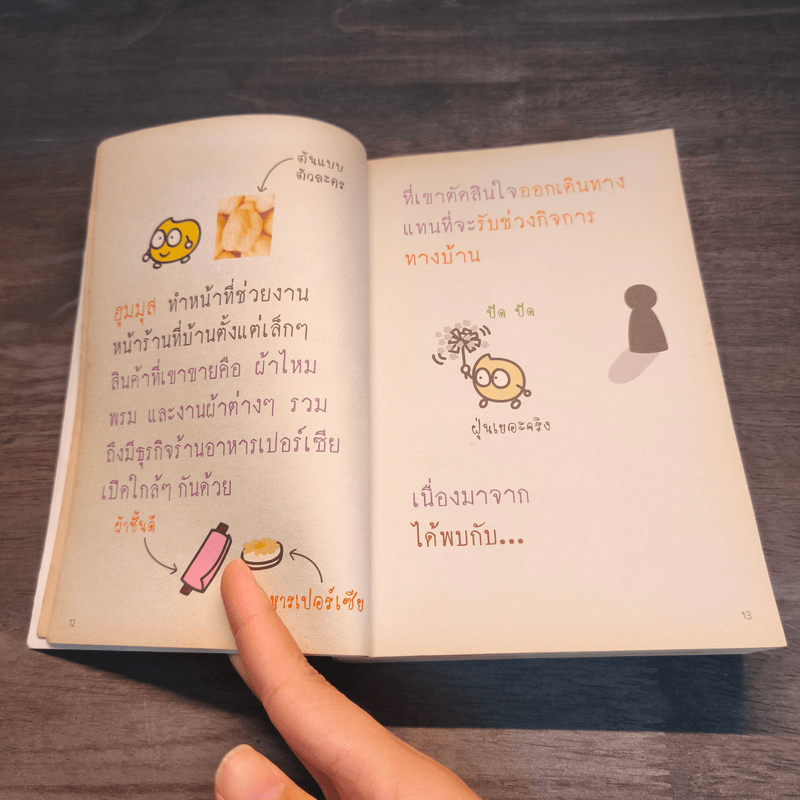 ต้นแบบ
ตัวละคร
ฮุมมุส ทำหน้าที่ช่วยงาน
หน้าร้านที่บ้านตั้งแต่เล็กๆ
สินค้าที่เขาขายคือ ผ้าไหม
พรม และงานผ้าต่างๆ รวม
ถึงมีธุรกิจร้านอาหารเปอร์เซีย
เปิดใกล้ๆ กันด้วย
ผ้าชั้นดี
หารเปอร์เซีย
12
ที่เขาตัดสินใจออกเดินทาง
แทนที่จะรับช่วงกิจการ
ทางบ้าน
ปัด ปัด
ฝุ่นเยอะจริง
เนื่องมาจาก
ได้พบกับ...
13